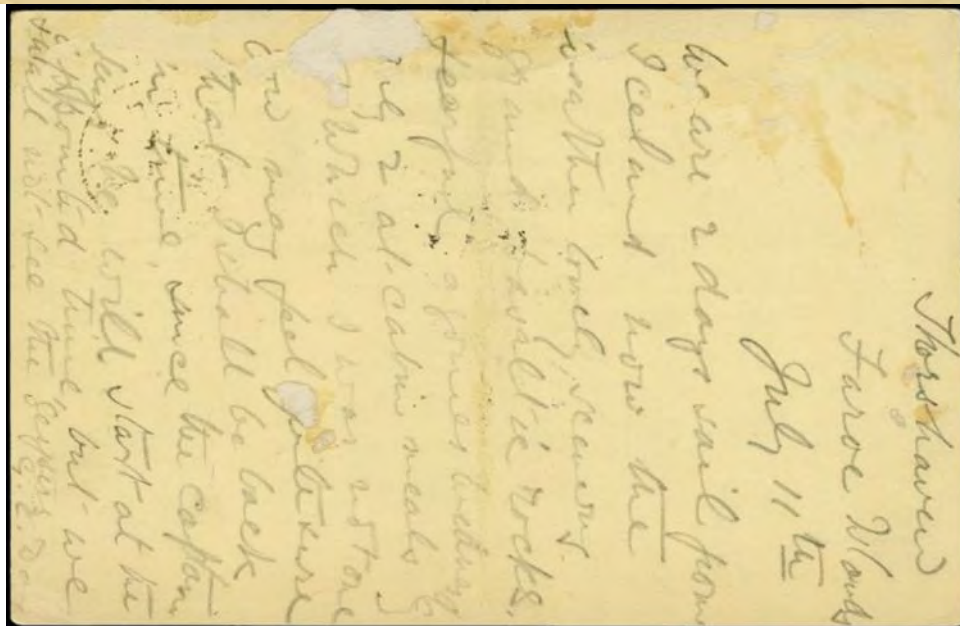 Thorshaven
Faroe Islands
July 11th
We are 2 days sail from
Iceland now the
weather lovely scenery
grand basaltic rocks.
fearful
only 2 at cabin meals
which I was not one
You may feel quite sure
that I shall be back
in time, since the captain
says he will start at the
appointed time, but we
shall not see the Geysirs